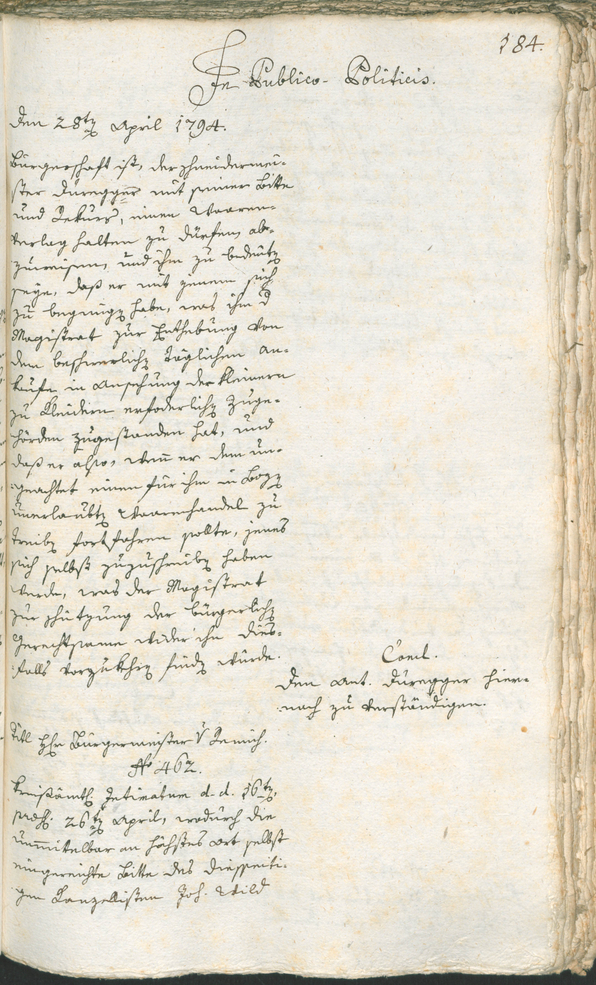 184.
In Publico-Politicis.
den 28ten April 1794.
Bürgerschaft ist, der Schneidermei-
ster Duregger mit seiner Bitte
und Rekurs, einen Waaren-
verlag halten zu dürfen, ab-
zuweisen, und ihm zu bedeuten
seye, daß er mit jenem sich
zu begnügen habe, was ihm der
Magistrat zur Enthebung von
dem beschwerlichen täglichen An-
kaufe in Ansehung der kleineren
zu Kleidern erfoderlichen Zuge-
hörden zugestanden hat, und
daß er also, wenn er dem un-
geachtet einen für ihn in Bozen
unerlaubten Waarenhandel zu
treiben fortfahren sollte, jenes
sich selbst zuzuschreiben haben
werde, was der Magistrat
zur Schützung der bürgerlichen
Gerechtsame wider ihn dies-
falls vorzukehren finden würde.
Concl.
Dem Ant. Duregger hier-
nach zu verständigen.
Titl Hr Bürgermeister v
No 462.
Kreisämtl. Intimatum d. d. 16ten,
präs. 26ten April, wodurch die
unmittelbar an höchstes Ort selbst
eingereichte Bitte des diesseiti-
gen Kanzellisten Joh. Wild